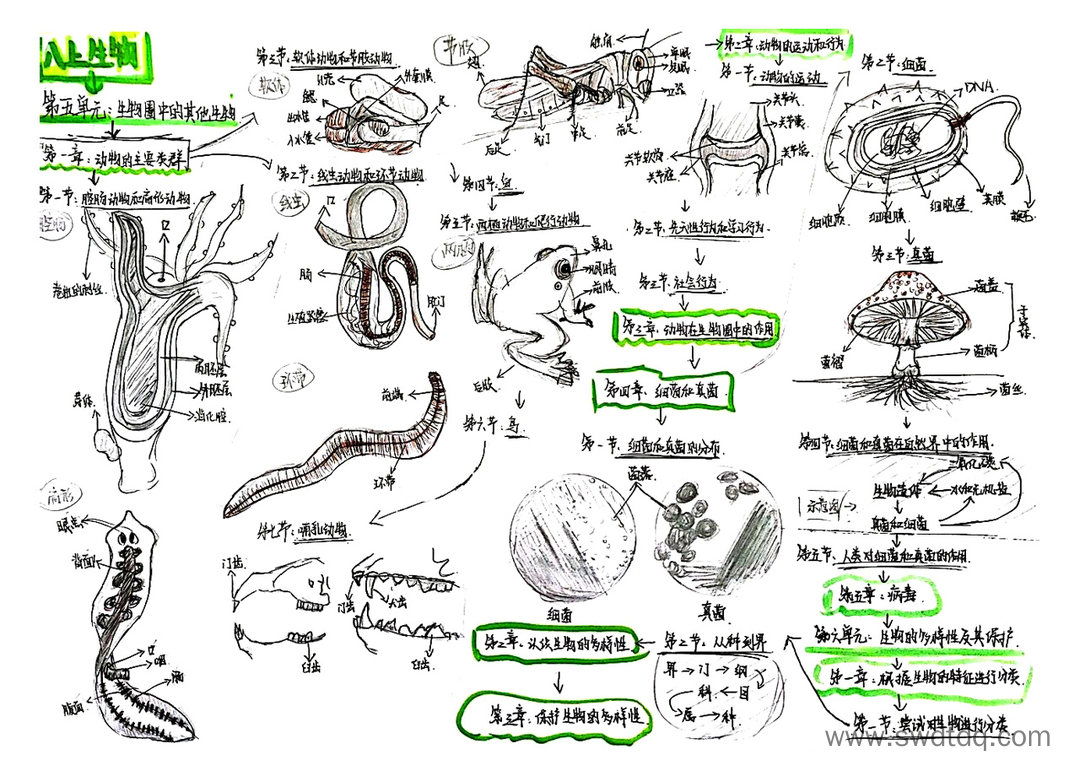 八上生物
第五单元：生物圈中的其他生物
第一章：动物的主要类群
第一节：腔肠动物和扁形动物
腔肠
口
内胚层
外胚层
消化腔
芽体
扁形
眼点
背面
口
咽
腹面
第三节：软体动物和节肢动物
软体
贝壳
外套膜
鳃
出水管
入水管
足
第二节：线形动物和环节动物
线虫
口
肠
生殖器官
肛门
环节
前端
环带
节肢
翅
触角
单眼
复眼
口器
后足
气门
中足
前足
第四节：鱼
第五节：两栖动物和爬行动物
两栖
鼻孔
眼睛
前肢
后肢
第六节：鸟
第七节：哺乳动物
门齿
臼齿
门齿
犬齿
臼齿
第二章：动物的运动和行为
第一节：动物的运动
关节头
关节囊
关节软骨
关节窝
关节腔
第二节：先天性行为和学习行为
第三节：社会行为
第三章：动物在生物圈中的作用
第四章：细菌和真菌
第一节：细菌和真菌的分布
菌落
细菌
真菌
第二节：细菌
DNA
细胞质
细胞膜
细胞壁
荚膜
鞭毛
第三节：真菌
菌盖
子实体
菌褶
菌柄
菌丝
第四节：细菌和真菌在自然界中的作用
二氧化碳
生物遗体
水和无机盐
示意图
真菌和细菌
第五节：人类对细菌和真菌的作用
第五章：病毒
第六单元：生物的多样性及其保护
第一章：根据生物的特征进行分类
第一节：尝试对生物进行分类
第二节：从种到界
界→门→纲
科←目
属→种
第二章：认识生物的多样性
第三章：保护生物的多样性
www.swdtdq.com